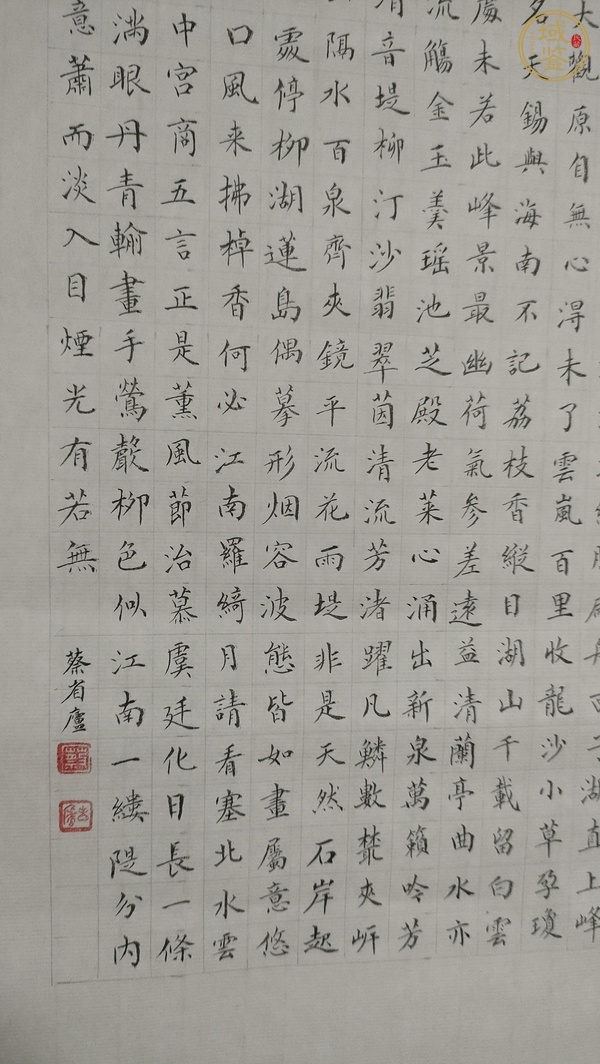 湖直上峰
大觀原自無心得未了雲嵐百里收龍沙小草孕瓊
名天錫與海南不記荔枝香縱目湖山千載留白雲
處未若此峰景最幽荷氣參差遠益清蘭亭曲水亦
流觴金玉羹瑤池芝殿老萊心涌出新泉萬籟吟芳
清音堤柳汀沙翡翠茵清流芳渚躍凡鱗數叢夾岍
隔水百泉齊夾鏡平流花雨堤非是天然石岸起
處停柳湖蓮島偶摹形烟容波態皆如畫屬意悠
口風来拂棹香何必江南羅綺月請看塞北水雲
中宮商五言正是薰風節治慕虞廷化日長一條
滿眼丹青輸畫手鶯聲柳色似江南一縷隄分內
意蕭而淡入目煙光有若無
蔡省廬